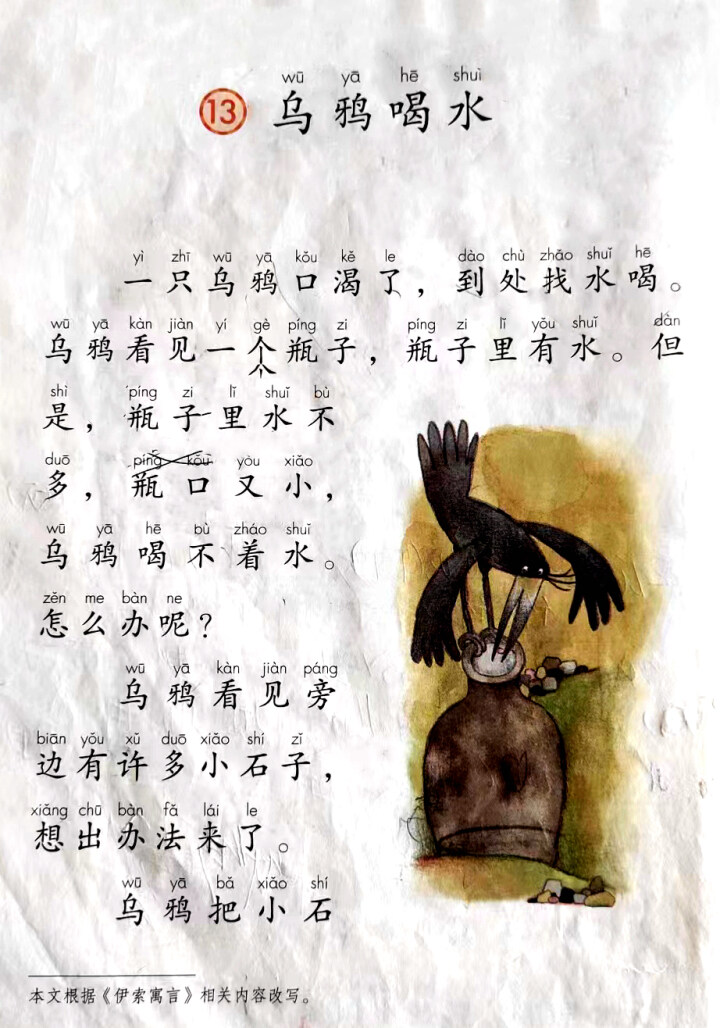 wū yā hē shuǐ
13 乌鸦喝水
yì zhī wū yā kǒu kě le dào chù zhǎo shuǐ hē
一只乌鸦口渴了，到处找水喝。
wū yā kàn jiàn yí gè píng zi píng zi lǐ yǒu shuǐ dàn
乌鸦看见一个瓶子，瓶子里有水。但
shì píng zi lǐ shuǐ bù
是，瓶子里水不
duō píng kǒu yòu xiǎo
多，瓶口又小，
wū yā hē bù zháo shuǐ
乌鸦喝不着水。
zěn me bàn ne
怎么办呢？
wū yā kàn jiàn páng
乌鸦看见旁
biān yǒu xǔ duō xiǎo shí zǐ
边有许多小石子，
xiǎng chū bàn fǎ lái le
想出办法来了。
wū yā bǎ xiǎo shí
乌鸦把小石
本文根据《伊索寓言》相关内容改写。